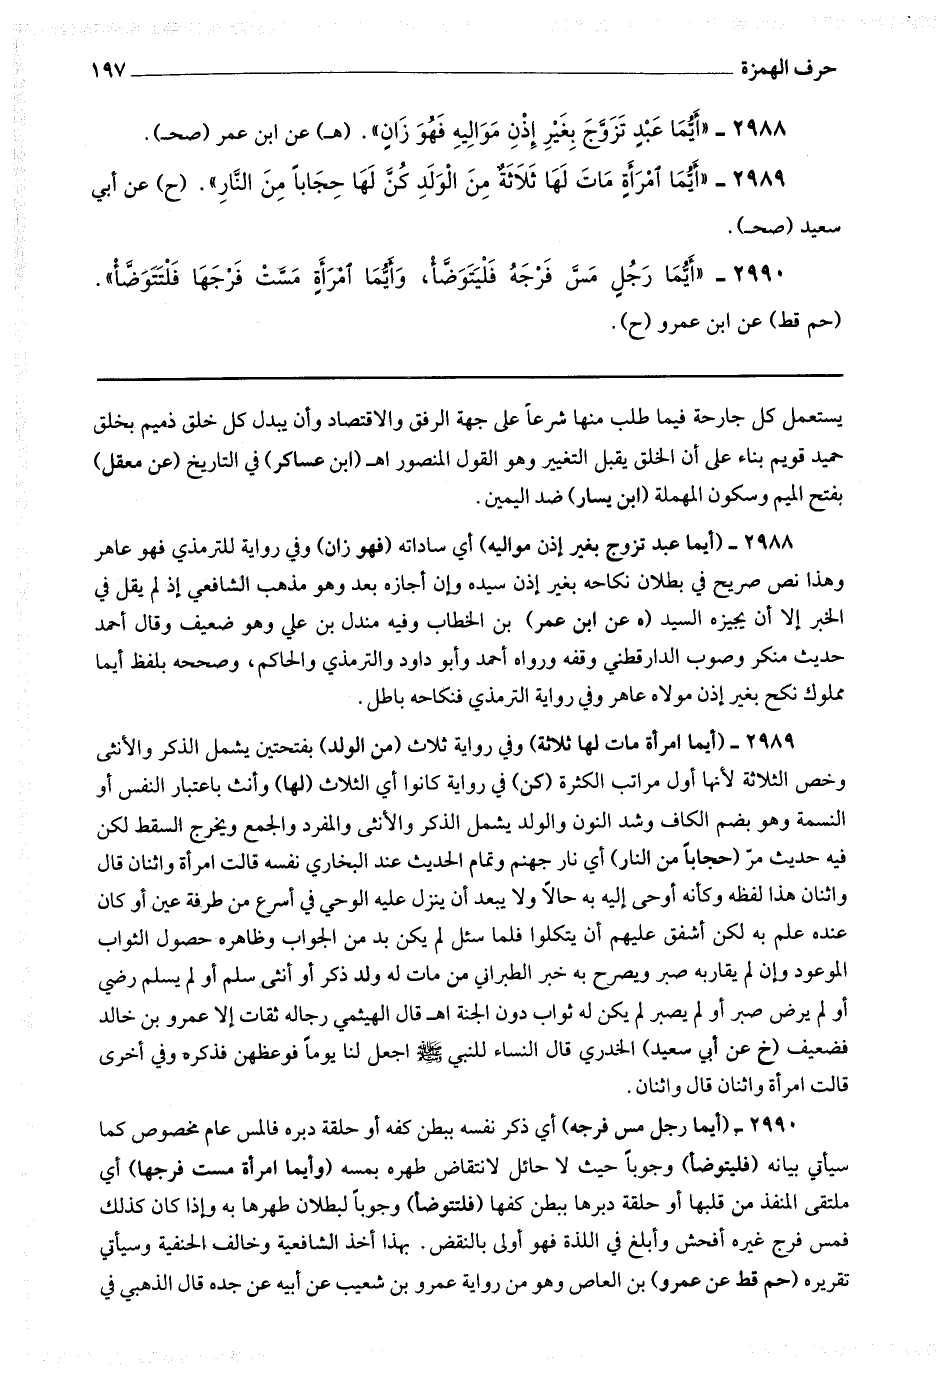 حرف الهمزة ١٩٧
٢٩٨٨ ـ «أَيُّمَا عَبْدٍ تَزَوَّجَ بِغَيْرِ إِذْنِ مَوَالِيهِ فَهُوَ زَانٍ». (هـ) عن ابن عمر (صحـ).
٢٩٨٩ ـ «أَيُّمَا ٱمْرَأَةٍ مَاتَ لَهَا ثَلَاثَةٌ مِنَ الْوَلَدِ كُنَّ لَهَا حِجَاباً مِنَ النَّارِ». (ح) عن أبي
سعيد (صحـ).
٢٩٩٠ ـ «أَيُّمَا رَجُلٍ مَسَّ فَرْجَهُ فَلْيَتَوَضَّأْ، وَأَيُّمَا ٱمْرَأَةٍ مَسَّتْ فَرْجَهَا فَلْتَتَوَضَّأْ».
(حم قط) عن ابن عمرو (ح).
يستعمل كل جارحة فيما طلب منها شرعاً على جهة الرفق والاقتصاد وأن يبدل كل خلق ذميم بخلق
حميد قويم بناء على أن الخلق يقبل التغيير وهو القول المنصور اهـ (ابن عساكر) في التاريخ (عن معقل)
بفتح الميم وسكون المهملة (ابن يسار) ضد اليمين.
٢٩٨٨ ـ (أيما عبد تزوج بغير إذن مواليه) أي ساداته (فهو زان) وفي رواية للترمذي فهو عاهر
وهذا نص صريح في بطلان نكاحه بغير إذن سيده وإن أجازه بعد وهو مذهب الشافعي إذ لم يقل في
الخبر إلا أن يجيزه السيد (ه عن ابن عمر) بن الخطاب وفيه مندل بن علي وهو ضعيف وقال أحمد
حديث منكر وصوب الدارقطني وقفه ورواه أحمد وأبو داود والترمذي والحاكم، وصححه بلفظ أيما
مملوك نكح بغير إذن مولاه عاهر وفي رواية الترمذي فنكاحه باطل.
٢٩٨٩ ـ (أيما امرأة مات لها ثلاثة) وفي رواية ثلاث (من الولد) بفتحتين يشمل الذكر والأنثى
وخص الثلاثة لأنها أول مراتب الكثرة (كن) في رواية كانوا أي الثلاث (لها) وأنث باعتبار النفس أو
النسمة وهو بضم الكاف وشد النون والولد يشمل الذكر والأنثى والمفرد والجمع ويخرج السقط لكن
فيه حديث مرّ (حجاباً من النار) أي نار جهنم وتمام الحديث عند البخاري نفسه قالت امرأة واثنان قال
واثنان هذا لفظه وكأنه أوحى إليه به حالاً ولا يبعد أن ينزل عليه الوحي في أسرع من طرفة عين أو كان
عنده علم به لكن أشفق عليهم أن يتكلوا فلما سئل لم يكن بد من الجواب وظاهره حصول الثواب
الموعود وإن لم يقاربه صبر ويصرح به خبر الطبراني من مات له ولد ذكر أو أنثى سلم أو لم يسلم رضي
أو لم يرض صبر أو لم يصبر لم يكن له ثواب دون الجنة اهـ قال الهيثمي رجاله ثقات إلا عمرو بن خالد
فضعيف (خ عن أبي سعيد) الخدري قال النساء للنبي ﷺ اجعل لنا يوماً فوعظهن فذكره وفي أخرى
قالت امرأة واثنان قال واثنان.
٢٩٩٠ ـ (أيما رجل مس فرجه) أي ذكر نفسه ببطن كفه أو حلقة دبره فالمس عام مخصوص كما
سيأتي بيانه (فليتوضأ) وجوباً حيث لا حائل لانتقاض طهره بمسه (وأيما امرأة مست فرجها) أي
ملتقى المنفذ من قلبها أو حلقة دبرها ببطن كفها (فلتتوضأ) وجوباً لبطلان طهرها به وإذا كان كذلك
فمس فرج غيره أفحش وأبلغ في اللذة فهو أولى بالنقض. بهذا أخذ الشافعية وخالف الحنفية وسيأتي
تقريره (حم قط عن عمرو) بن العاص وهو من رواية عمرو بن شعيب عن أبيه عن جده قال الذهبي في